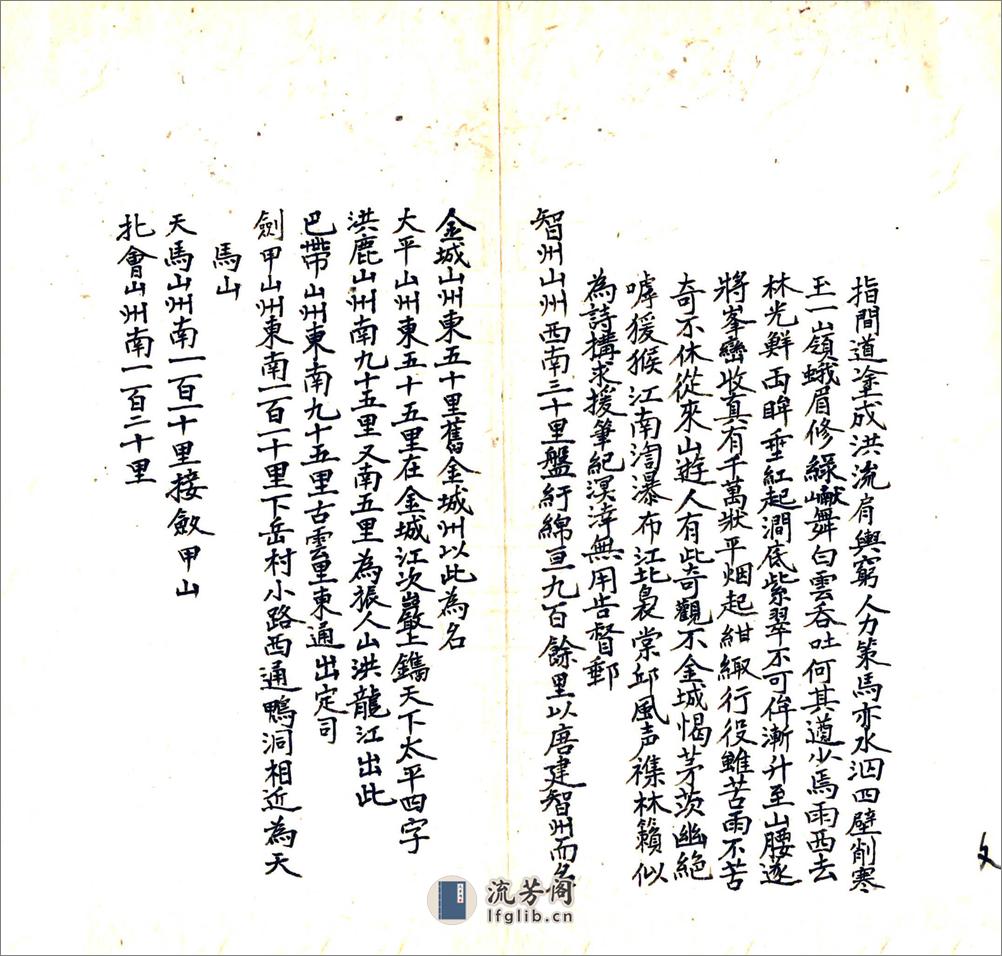 指間道塗成洪流肩輿窮人力策馬亦水泅四壁削寒
玉一嶺蛾眉修綠巘舞白雲吞吐何其遒少焉雨西去
林光鮮雨眸垂紅起澗底紫翠不可侔漸升至山腰遂
將峯巒收真有千萬狀平烟起紺緅行役雖苦雨不苦
奇不休從來山遊人有此奇觀不金城愒茅茨幽絕
嘑猨猴江南淘瀑布江北裊棠邱風声襍林籟似
為詩搆求援筆紀溟涬無用告督郵
智州山州西南三十里盤紆綿亘九百餘里以唐建智州而名
金城山州東五十里舊金城州以此為名
大平山州東五十五里在金城江次巖上鐫天下太平四字
洪鹿山州南九十五里又南五里為振人山洪龍江出此
巴帶山州東南九十五里古雲里東通出定司
劍甲山州東南一百一十里下岳村小路西通鴨洞相近為天
馬山
天馬山州南一百一十里接斂甲山
扎會山州南一百二十里
文
流芳阁
lfglib.cn